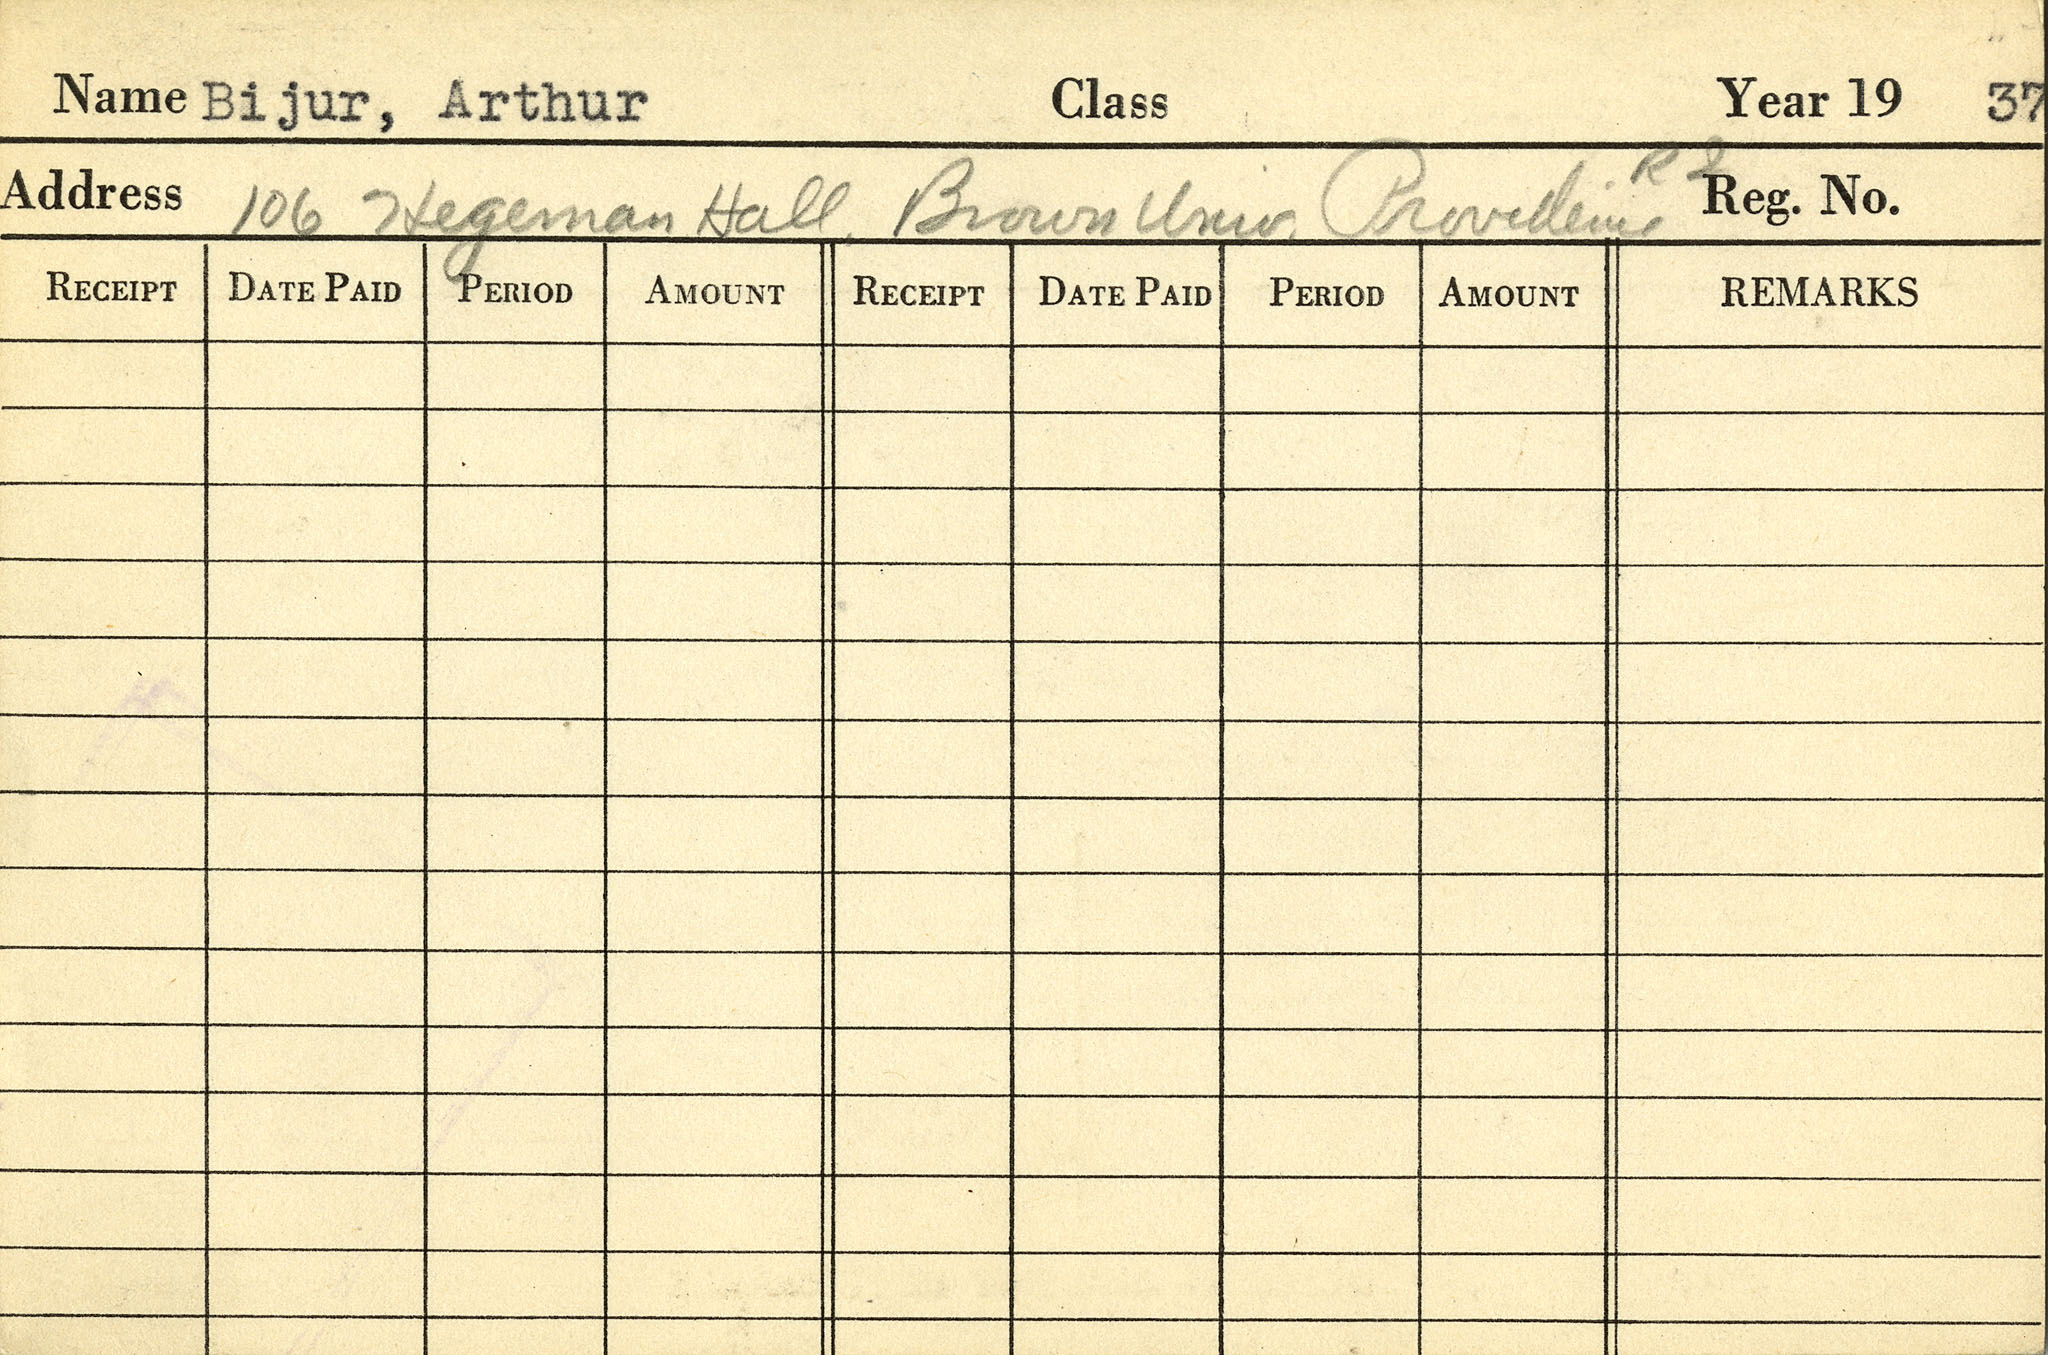 Name Bijur, Arthur Class Year 19 37
Address 106 Hegeman Hall, Brown Univ. Providence R I Reg. No.
RECEIPT DATE PAID PERIOD AMOUNT RECEIPT DATE PAID PERIOD AMOUNT REMARKS